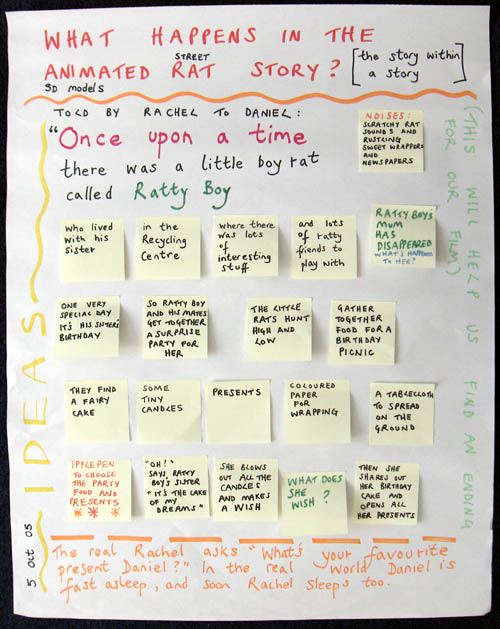 WHAT HAPPENS IN THE
STREET
ANIMATED RAT STORY?
[the story within
a story]
3D models
TOLD BY RACHEL TO DANIEL:
"Once upon a time
there was a little boy rat
called Ratty Boy
NOISES:
SCRATCHY RAT
SOUNDS AND
RUSTLING
SWEET WRAPPERS
AND
NEWSPAPERS
who lived
with his
sister
in the
Recycling
Centre
where there
was lots
of
interesting
stuff
and lots
of ratty
friends to
play with
RATTY BOY'S
MUM
HAS
DISAPPEARED
WHAT'S HAPPENED
TO HER?
ONE VERY
SPECIAL DAY
IT'S HIS SISTER'S
BIRTHDAY
SO RATTY BOY
AND HIS MATES
GET TOGETHER
A SURPRISE
PARTY FOR
HER
THE LITTLE
RATS HUNT
HIGH AND
LOW
GATHER
TOGETHER
FOOD FOR A
BIRTHDAY
PICNIC
THEY FIND
A FAIRY
CAKE
SOME
TINY
CANDLES
PRESENTS
COLOURED
PAPER
FOR
WRAPPING
A TABLECLOTH
TO SPREAD
ON THE
GROUND
IPPLEPEN
TO CHOOSE
THE PARTY
FOOD AND
PRESENTS
* * *
"OH!"
SAYS RATTY
BOY'S SISTER
"IT'S THE CAKE
OF MY
DREAMS"
SHE BLOWS
OUT ALL THE
CANDLES
AND MAKES
A WISH
WHAT DOES
SHE
WISH?
THEN SHE
SHARES OUT
HER BIRTHDAY
CAKE AND
OPENS ALL
HER PRESENTS
The real Rachel asks "What's your favourite
present Daniel?" In the real world Daniel is
fast asleep, and soon Rachel sleeps too.
IDEAS
5 OCT 05
(THIS WILL HELP US FIND AN ENDING
FOR OUR FILM)